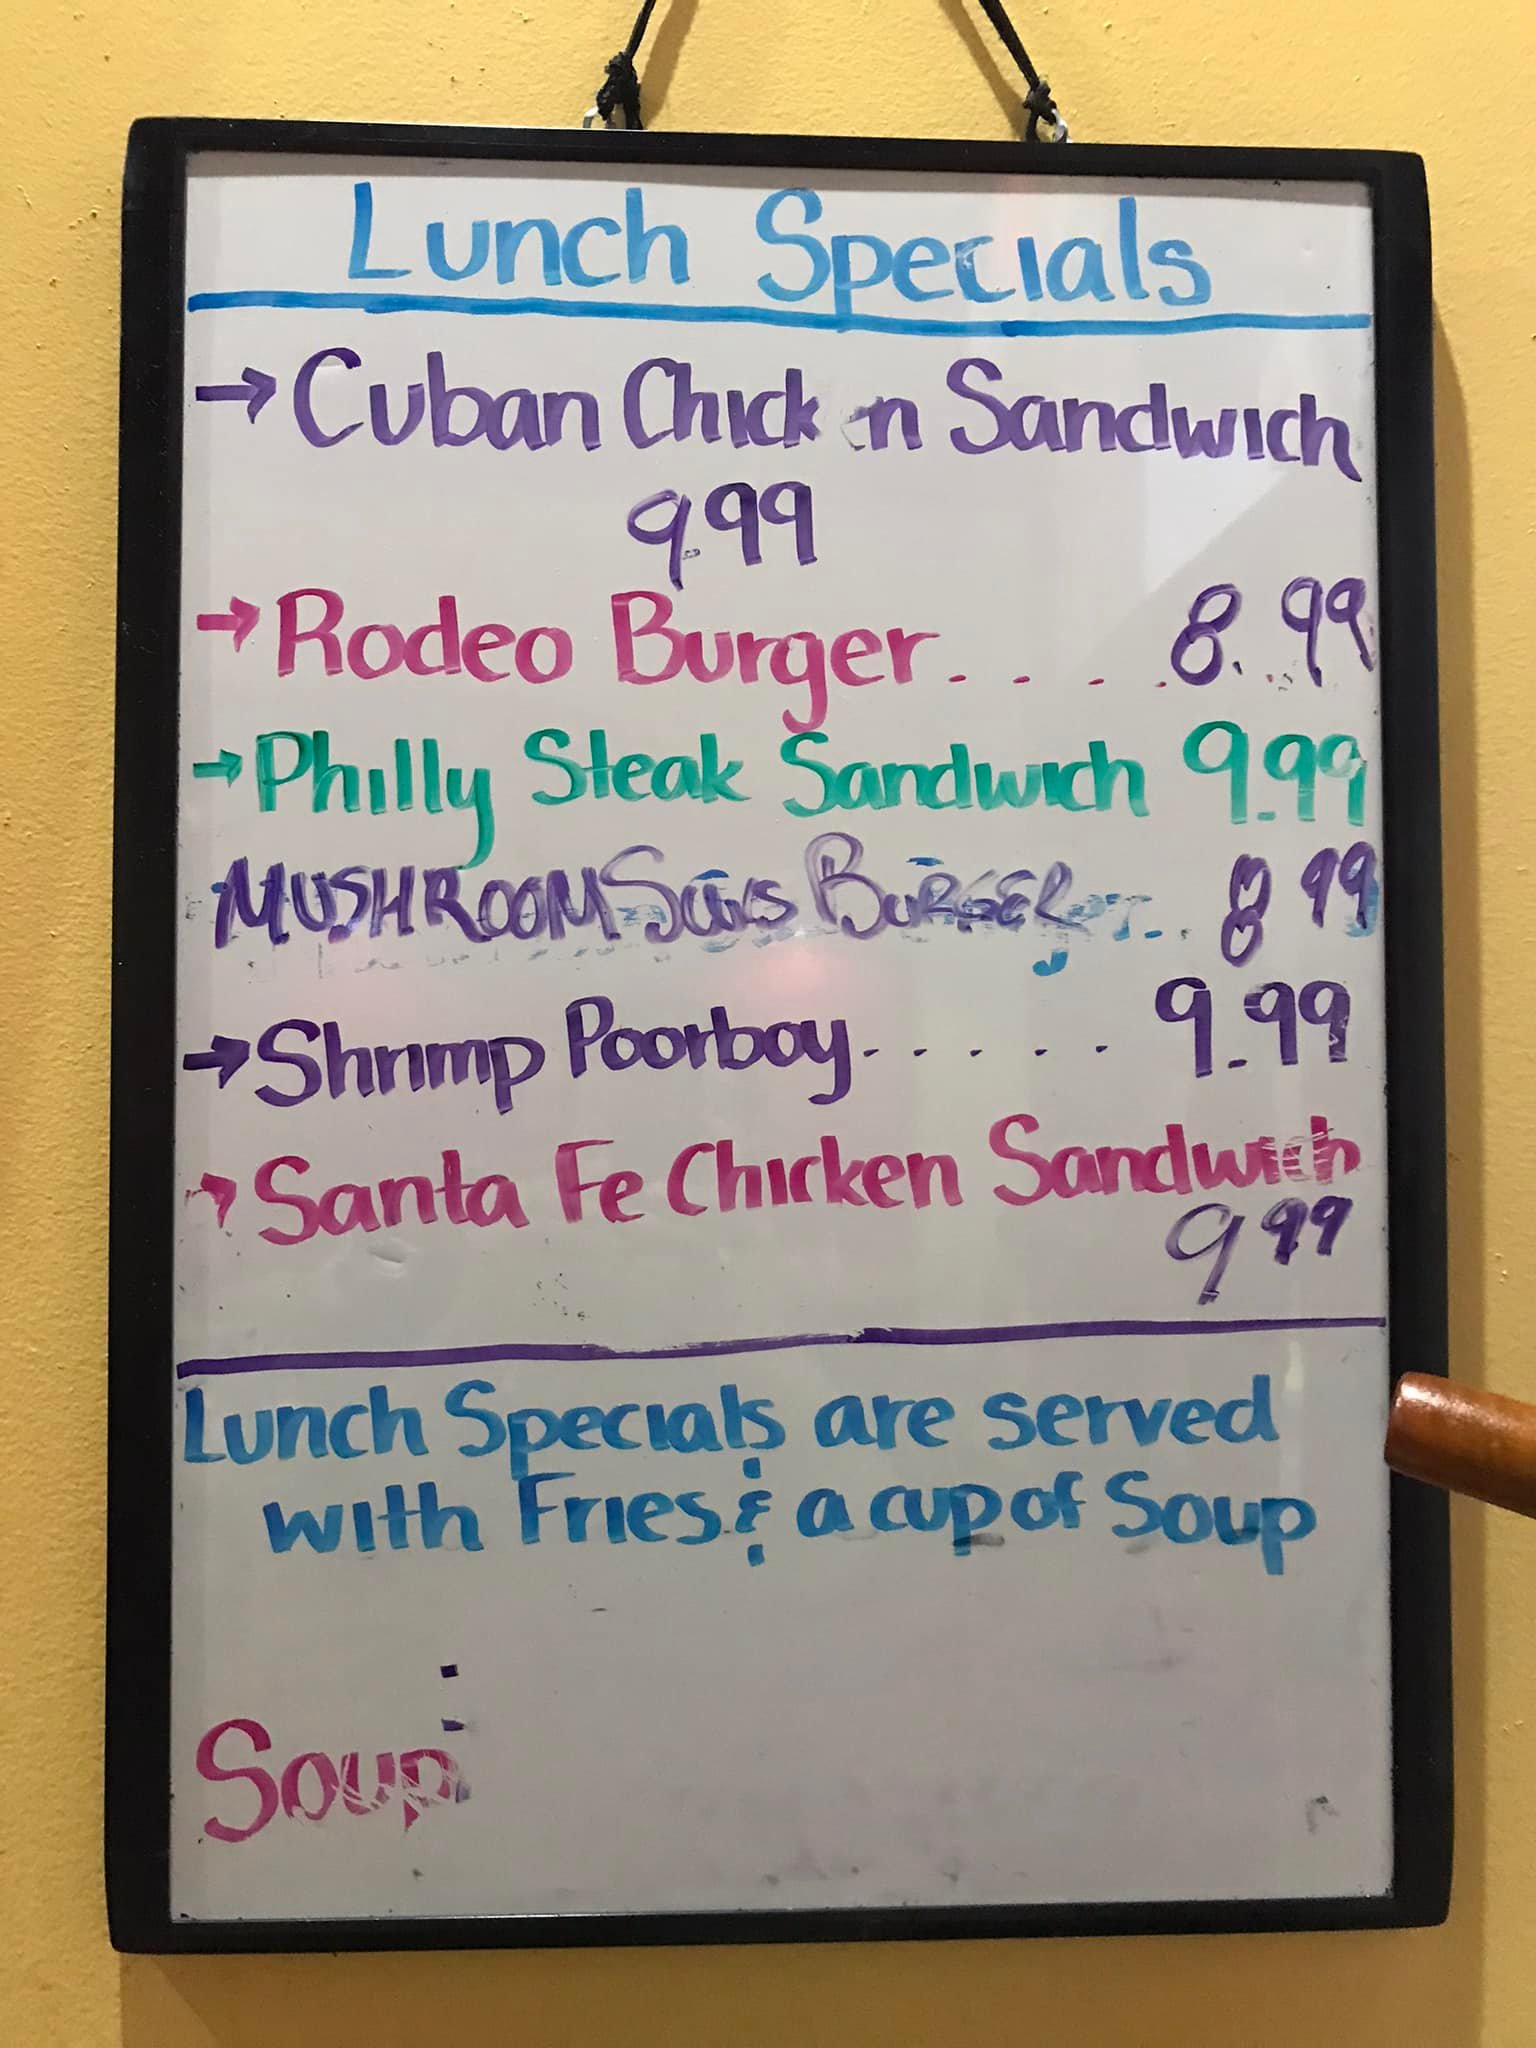 Lunch Specials
→ Cuban Chick en Sandwich
9.99
→ Rodeo Burger.... 8.99
→ Philly Steak Sandwich 9.99
MUSHROOM Swiss BURGER .. 8 99
→ Shrimp Poorboy..... 9.99
→ Santa Fe Chicken Sandwich
9 99
Lunch Specials are served
with Fries & a cup of Soup
Soup: